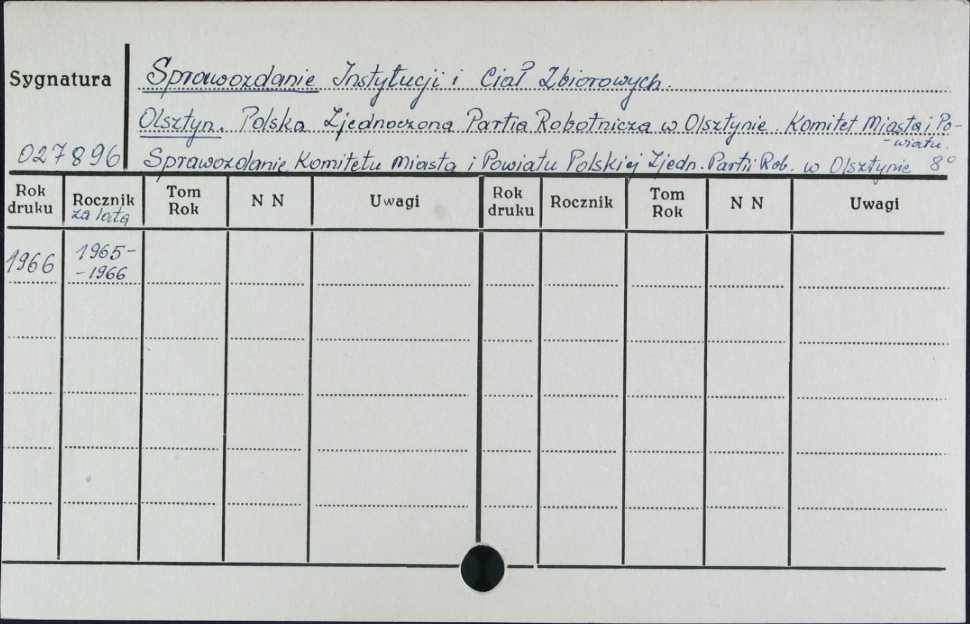 Sygnatura
Sprawozdanie Instytucji i Ciał Zbiorowych.
Olsztyn. Polska Zjednoczona Partia Robotnicza w Olsztynie. Komitet Miasta i Po-
-wiatu.
027896 Sprawozdanie Komitetu Miasta i Powiatu Polskiej Zjedn. Partii Rob. w Olsztynie 8°
Rok druku Rocznik za lata Tom Rok N N Uwagi Rok druku Rocznik Tom Rok N N Uwagi
1966 1965-
-1966